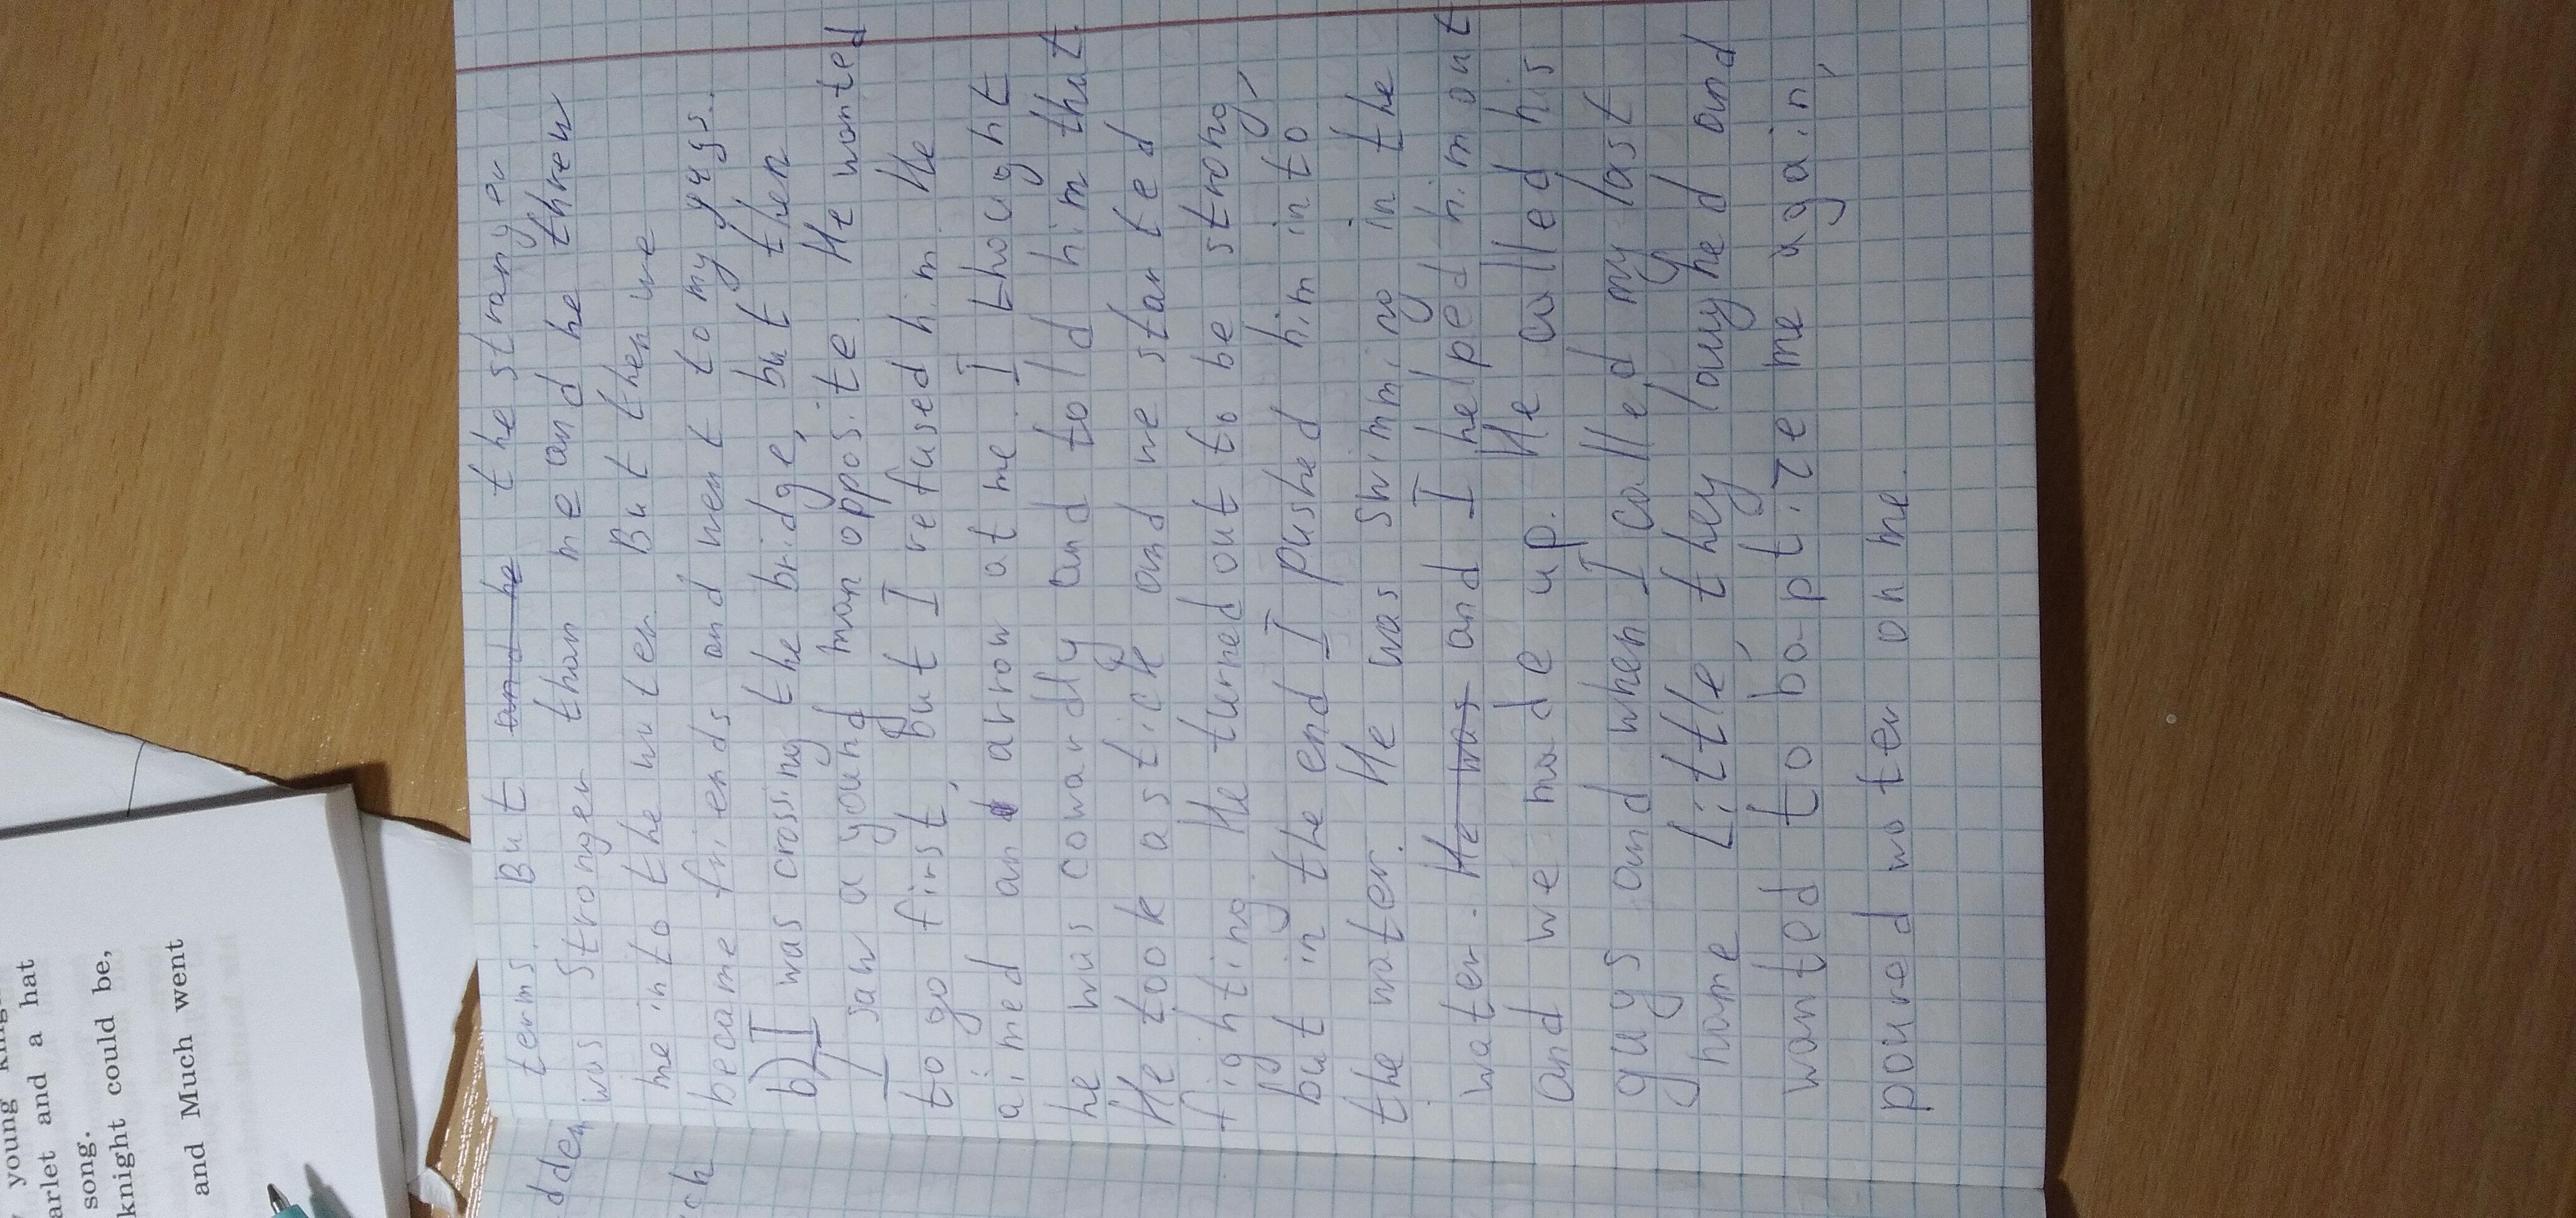 young
arlet and a hat
song.
knight could be,
and Much went
dden
ch
terms. But and he the stranger
was stronger than me and he threw
me into the water. But then we
became friends and went to my guys.
b) I was crossing the bridge, but then
I saw a yound man opposite. He wanted
to go first, but I refused him. He
aimed an arrow at me. I thought
he was cowardly and told him that.
He took a stick and we started
fighting. He turned out to be strong,
but in the end I pushed him into
the water. He was swimming in the
water. He was and I helped him out
and we made up. He called his
guys and when I called my last
name Little, they laughed and
wanted to baptize me again,
poured water on me.